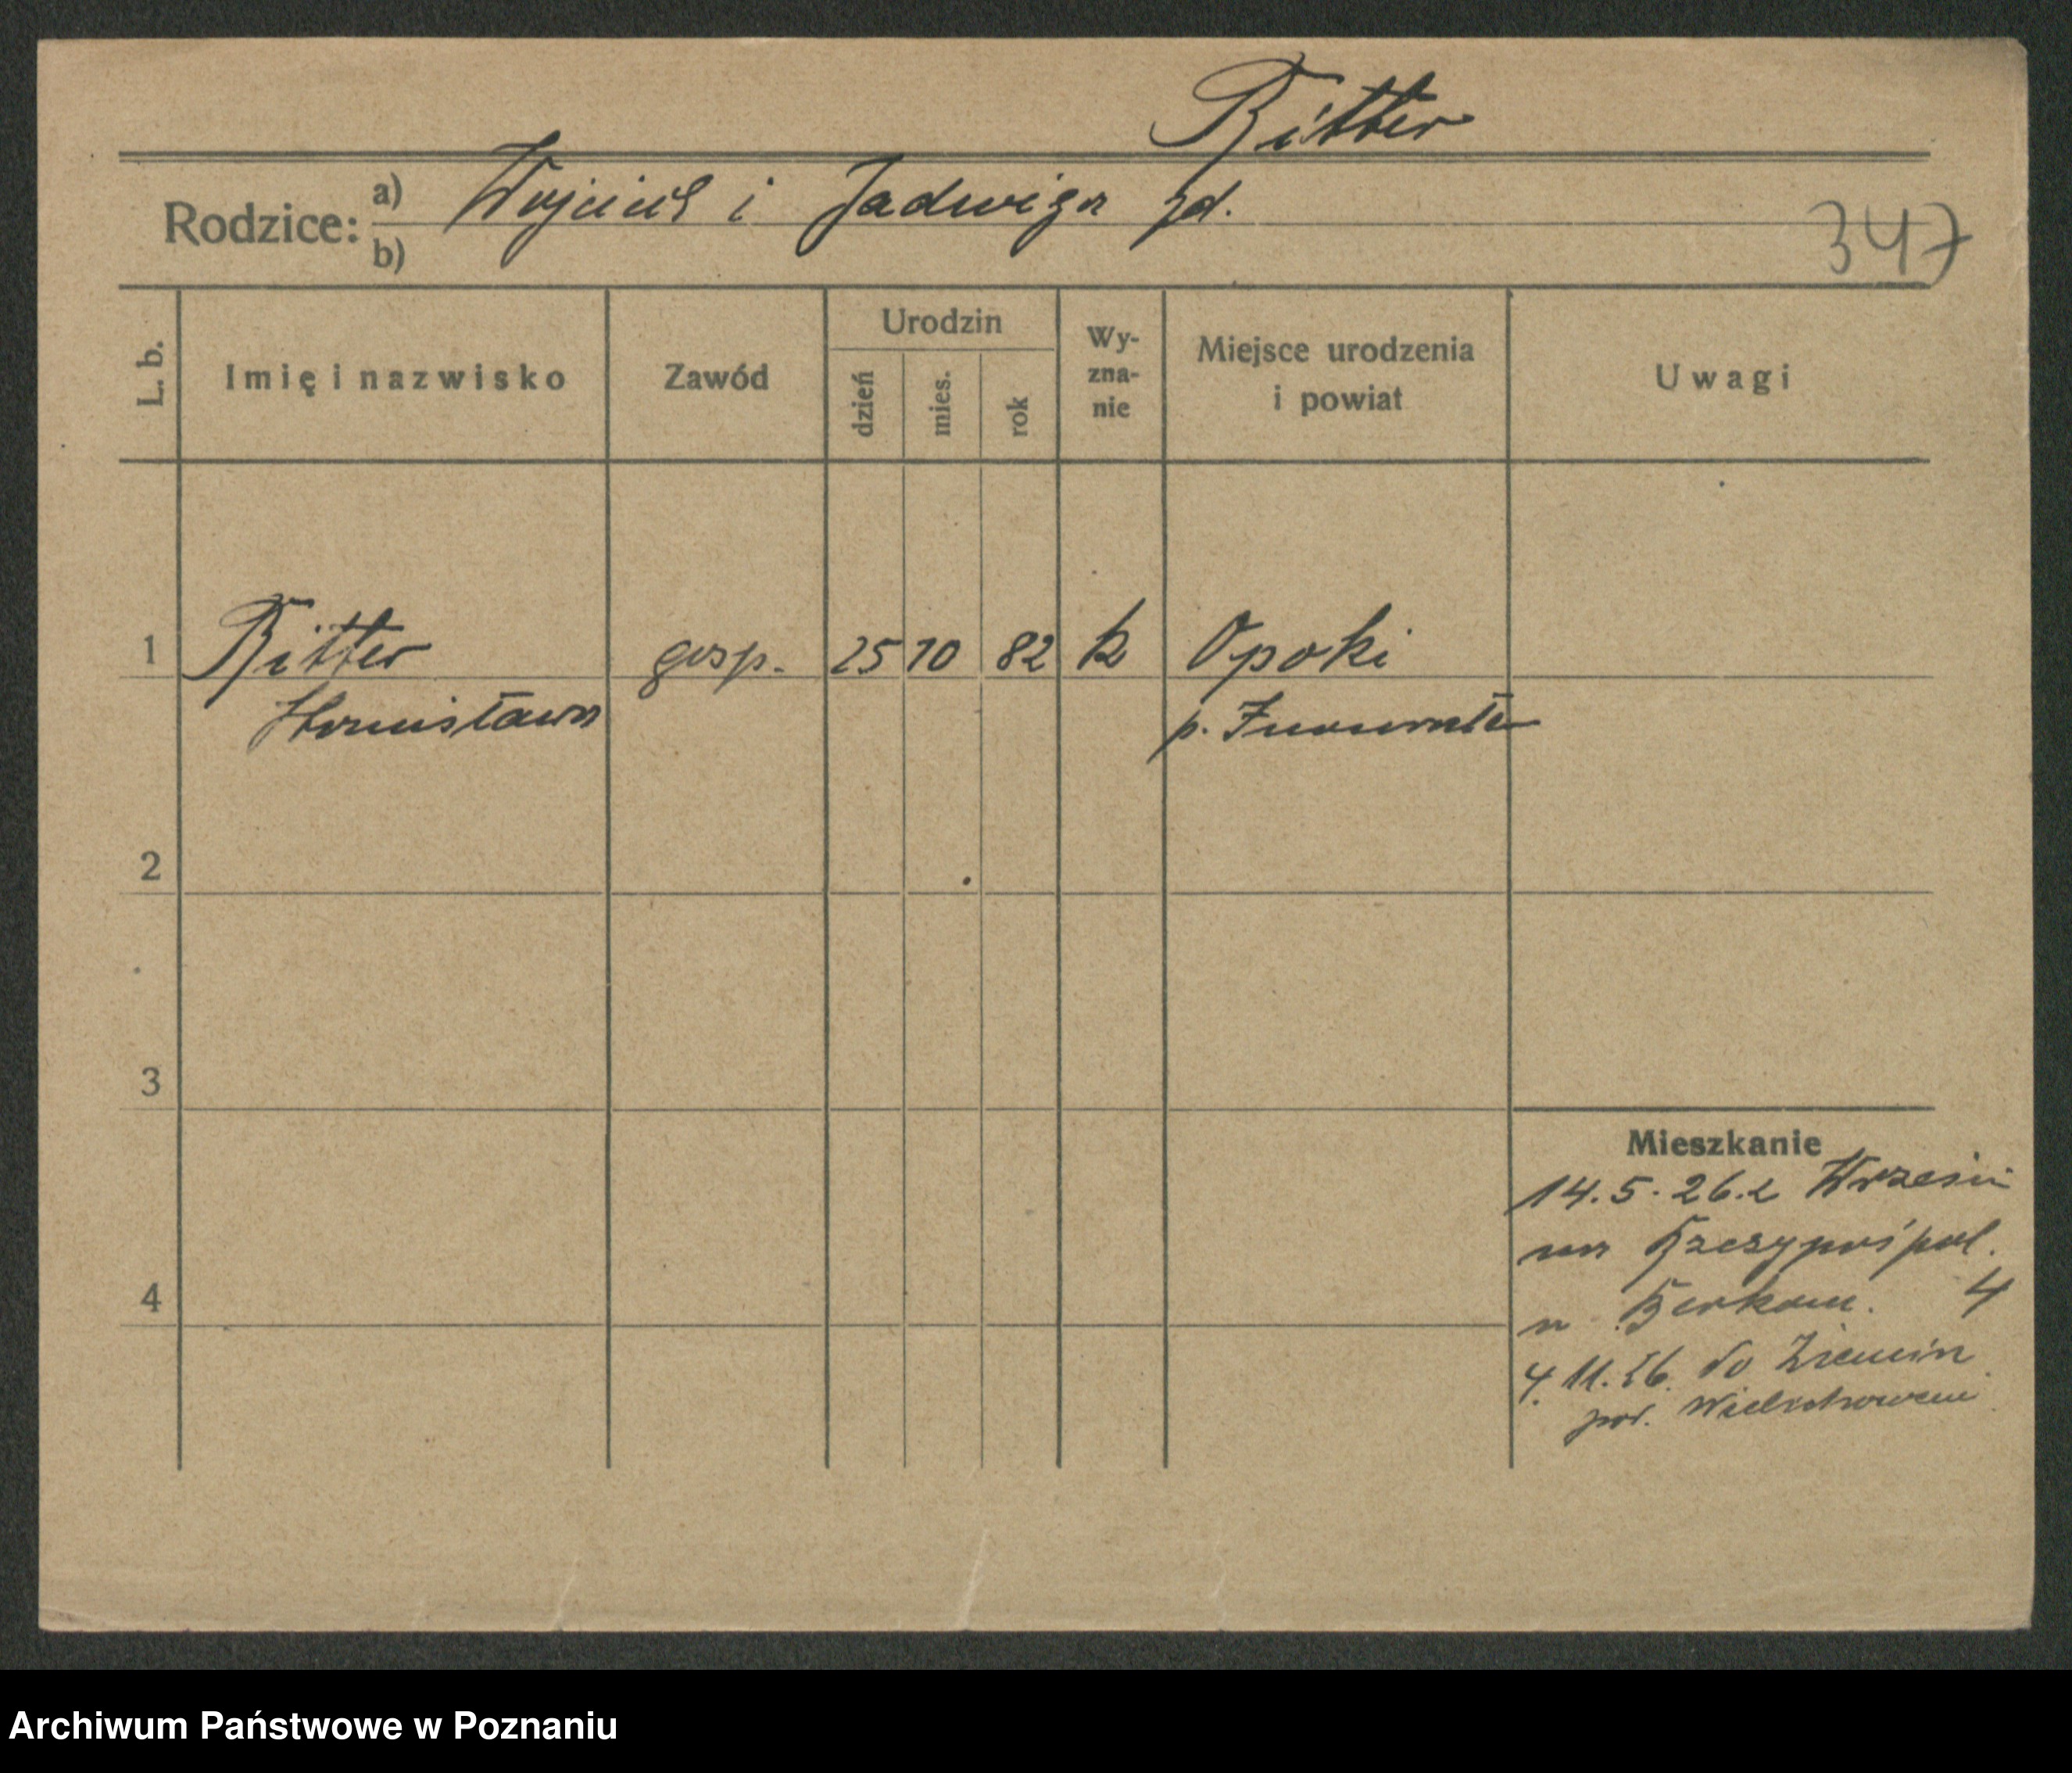 Ritter
Rodzice: a) Wojciech i Jadwiga zd.
b)
347
L. b.
Imię i nazwisko
Zawód
Urodzin
dzień
mies.
rok
Wy-
zna-
nie
Miejsce urodzenia
i powiat
Uwagi
1 Ritter gosp. 25 10 82 k Opoki
Stanisława p. Inowrocław
2
3
4
Mieszkanie
14.5.26. z Wrześni
na Rzeczypospol.
u 4
4.11.26. do
pow.
Archiwum Państwowe w Poznaniu